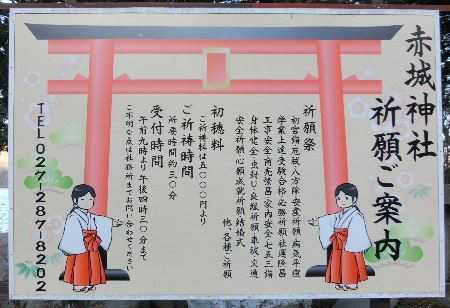 赤城神社
祈願ご案内
祈願祭
初宮詣 厄祓 八方除 安産祈願 病気平癒
学業上達 受験合格 必勝祈願 社運隆昌
工事安全 商売繁昌 家内安全 七五三詣
身体健全 虫封じ 良縁祈願 車祓 交通
安全祈願 心願成就祈願 結婚式
他、各種ご祈願
初穂料
ご祈祷料は5000円より
ご祈祷時間
所要時間約30分
受付時間
午前九時より午後四時三〇分まで
ご不明な点は社務所までお問い合わせください
TEL 027-287-8202